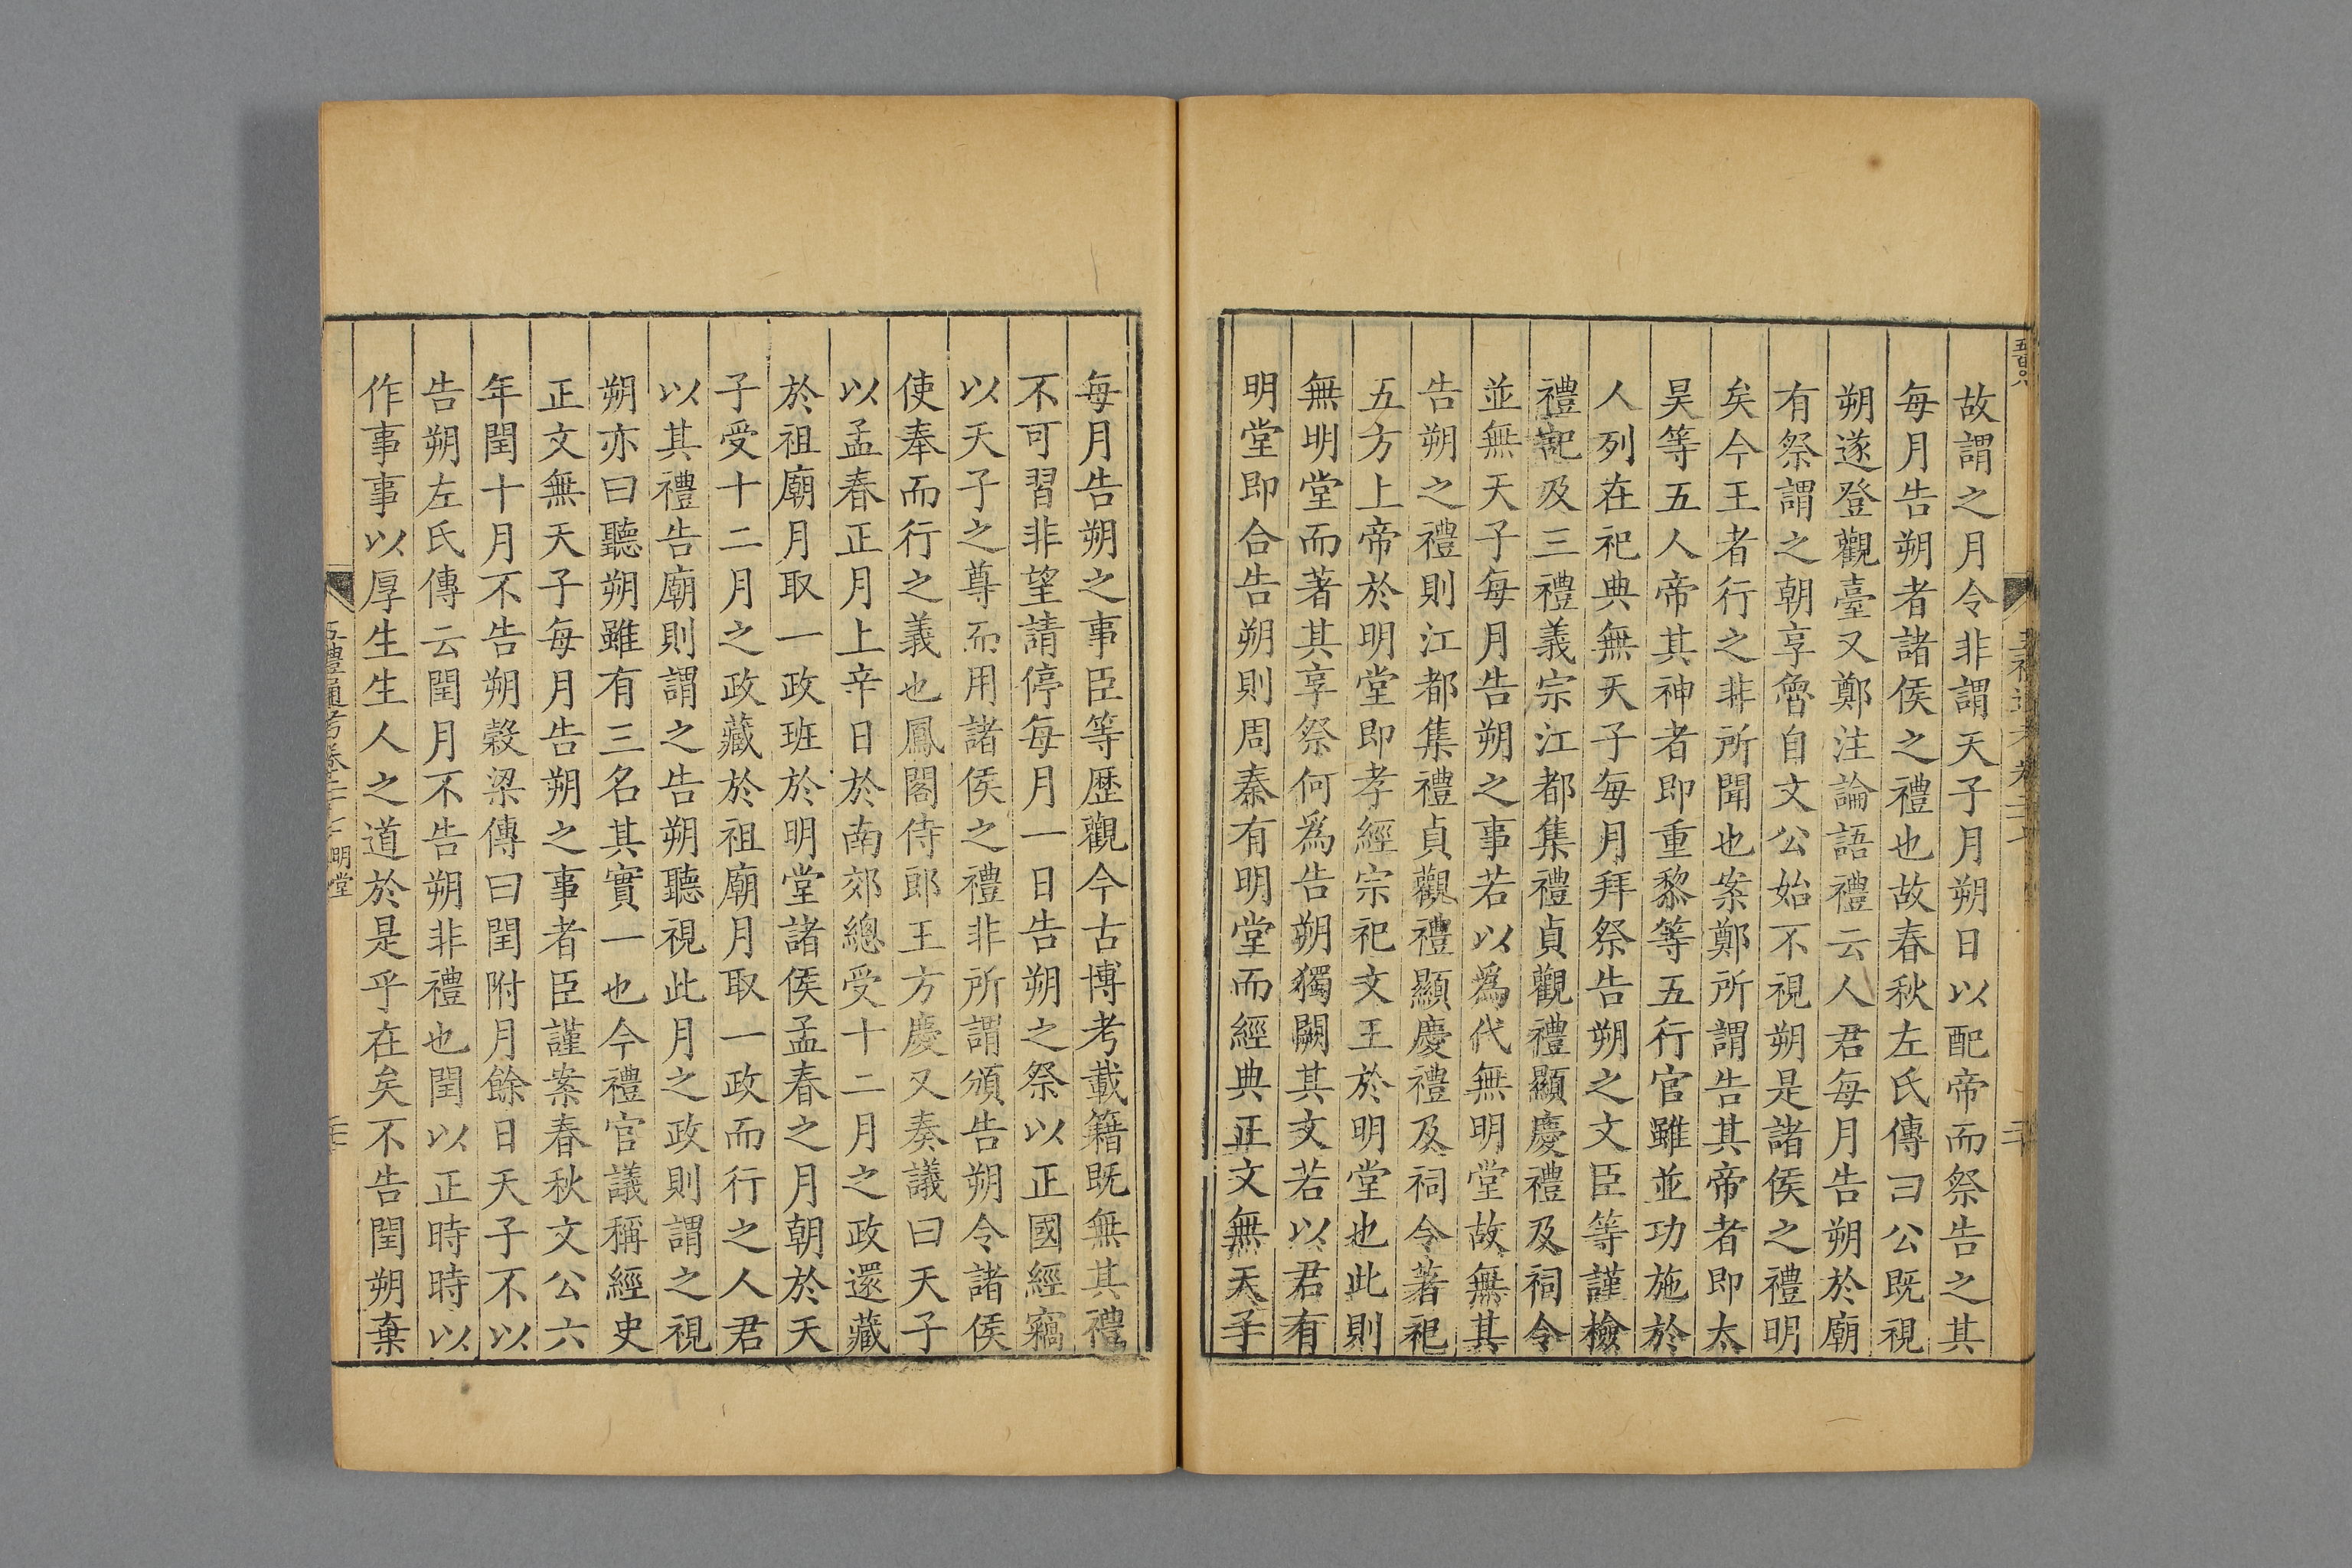 故謂之月令非謂天子月朔日以配帝而祭告之其
每月告朔者諸侯之禮也故春秋左氏傳曰公既視
朔遂登觀臺又鄭注論語禮云人君每月告朔於廟
有祭謂之朝享魯自文公始不視朔是諸侯之禮明
矣今王者行之非所聞也案鄭所謂告其帝者即太
昊等五人帝其神者即重黎等五行官雖並功施於
人列在祀典無天子每月拜祭告朔之文臣等謹檢
禮記及三禮義宗江都集禮貞觀禮顯慶禮及祠令
並無天子每月告朔之事若以爲代無明堂故無其
告朔之禮則江都集禮貞觀禮顯慶禮及祠令著祀
五方上帝於明堂即孝經宗祀文王於明堂也此則
無明堂而著其享祭何爲告朔獨闕其文若以君有
明堂即合告朔則周秦有明堂而經典正文無天子
每月告朔之事臣等歷觀今古博考載籍既無其禮
不可習非望請停每月一日告朔之祭以正國經竊
以天子之尊而用諸侯之禮非所謂頒告朔令諸侯
使奉而行之義也鳳閣侍郎王方慶又奏議曰天子
以孟春正月上辛日於南郊總受十二月之政還藏
於祖廟月取一政班於明堂諸侯孟春之月朝於天
子受十二月之政藏於祖廟月取一政而行之人君
以其禮告廟則謂之告朔聽視此月之政則謂之視
朔亦曰聽朔雖有三名其實一也今禮官議稱經史
正文無天子每月告朔之事者臣謹案春秋文公六
年閏十月不告朔穀梁傳曰閏附月餘日天子不以
告朔左氏傳云閏月不告朔非禮也閏以正時時以
作事事以厚生生人之道於是乎在矣不告閏朔棄
五禮通考卷二十 明堂